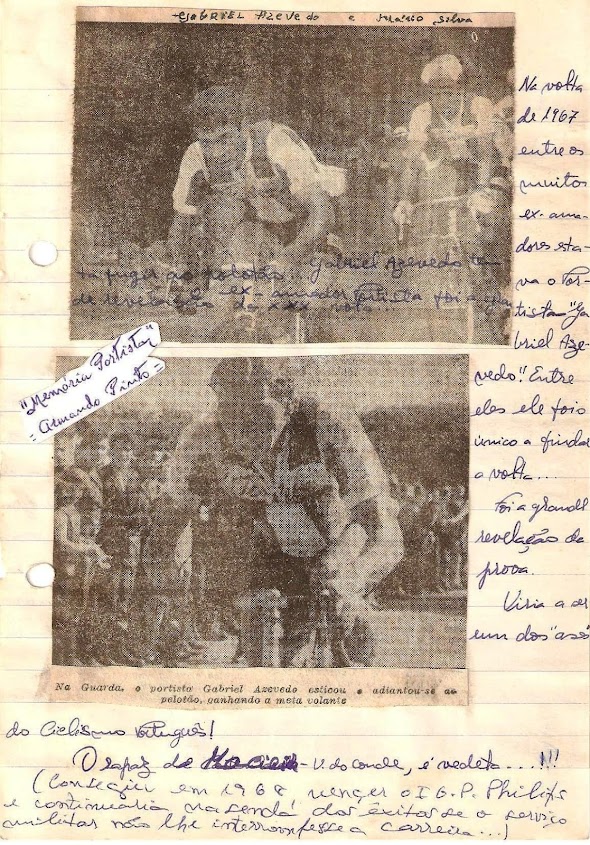 GABRIEL Azevedo e Mário Silva
Na volta
de 1967
entre os
muitos
ex-ama-
dores esta-
va o Por-
tista "Ga
briel Aze-
vedo." Entre
eles ele foi o
único a findar
a volta...
Foi a grande
revelação da
prova.
Viria a ser
um dos "ases
do Ciclismo Português!
ta fugir ao pelotão... Gabriel Azevedo ten
ex-amador Portista foi a gran
de revelação da XXX volta...
"Memória Portista"
= Armando Pinto =
Na Guarda, o portista Gabriel Azevedo esticou e adiantou-se ao
pelotão, ganhando a meta volante
O rapaz de - V. do Conde, é vedeta....!!!
(Conseguiu em 1968 vencer o I G.P. Philips
e continuaria na senda dos êxitos se o serviço
militar não lhe interrompesse a carreira...)